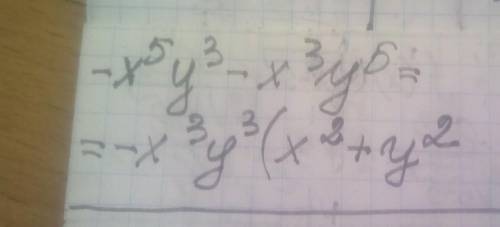 -x⁵y³-x³y⁵=
=-x³y³(x²+y²